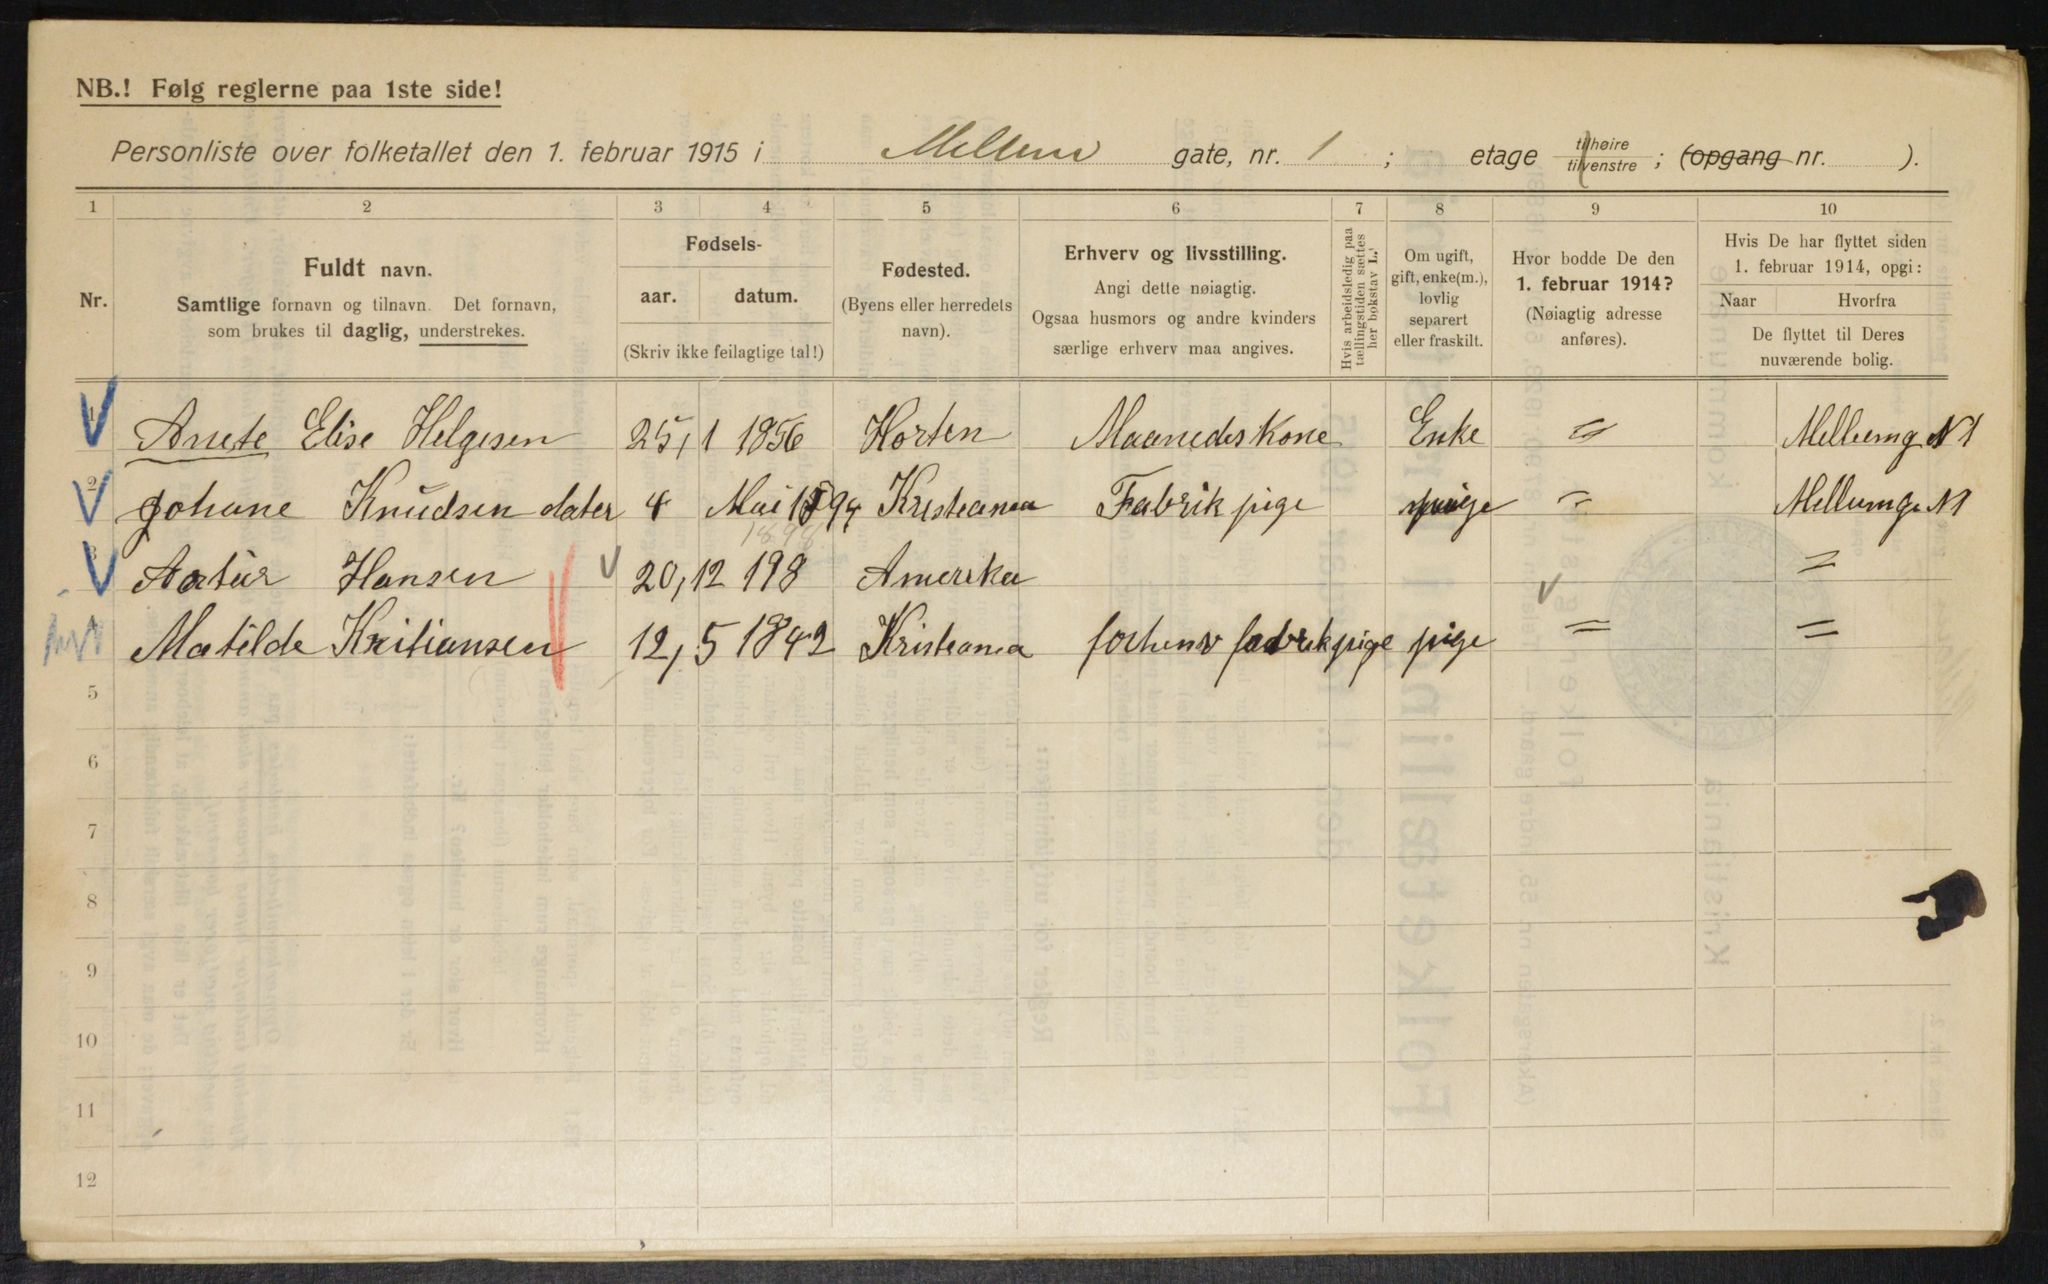 NB.! Følg reglerne paa 1ste side!
Personliste over folketallet den 1. februar 1915 i Mellum gate, nr. 1 ; etage tilhøire tilvenstre ; (opgang nr. ).
1 2 3 4 5 6 7 8 9 10
Nr.
Fuldt navn.
Samtlige fornavn og tilnavn. Det fornavn,
som brukes til daglig, understrekes.
Fødsels-
aar. datum.
(Skriv ikke feilagtige tal!)
Fødested.
(Byens eller herredets
navn).
Erhverv og livsstilling.
Angi dette nøiagtig.
Ogsaa husmors og andre kvinders
særlige erhverv maa angives.
Hvis arbeidsledig paa
tællingstiden sættes
her bokstav L.
Om ugift,
gift, enke(m.),
lovlig
separert
eller fraskilt.
Hvor bodde De den
1. februar 1914?
(Nøiagtig adresse
anføres).
Hvis De har flyttet siden
1. februar 1914, opgi:
Naar Hvorfra
De flyttet til Deres
nuværende bolig.
1 Anete Elise Helgesen 25, 1 1856 Horten Maanedskone Enke = Mellumg N 1
2 Johane Knudsen dater 4 Mai 1894 Kristeania Fabrik pige pige = Mellumg N 1
3 Artur Hansen 20, 12 198 Amerika =
4 Matilde Kritiansen 12, 5 1842 Kristeania forhenv fabrikpige pige = =
5
6
7
8
9
10
11
12